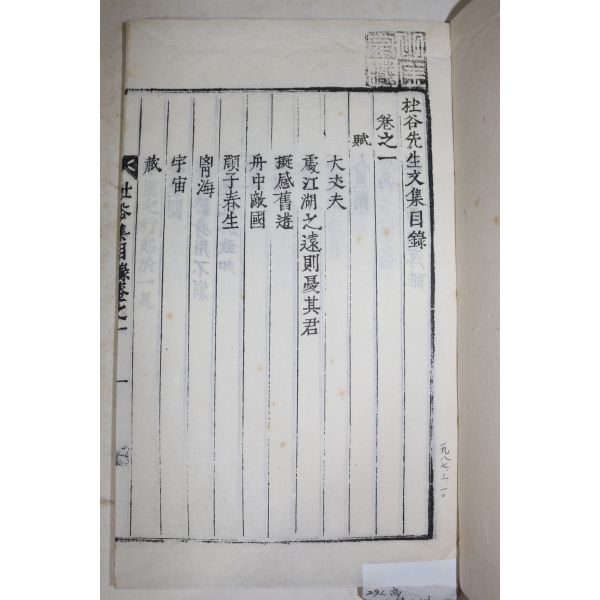 杜谷先生文集目錄
卷之一
賦
大丈夫
處江湖之遠則憂其君
擬感舊遊
舟中敵國
顏子春生
胷海
宇宙
蔵
杜谷集目錄卷之一
一
一九八七·三·一〇